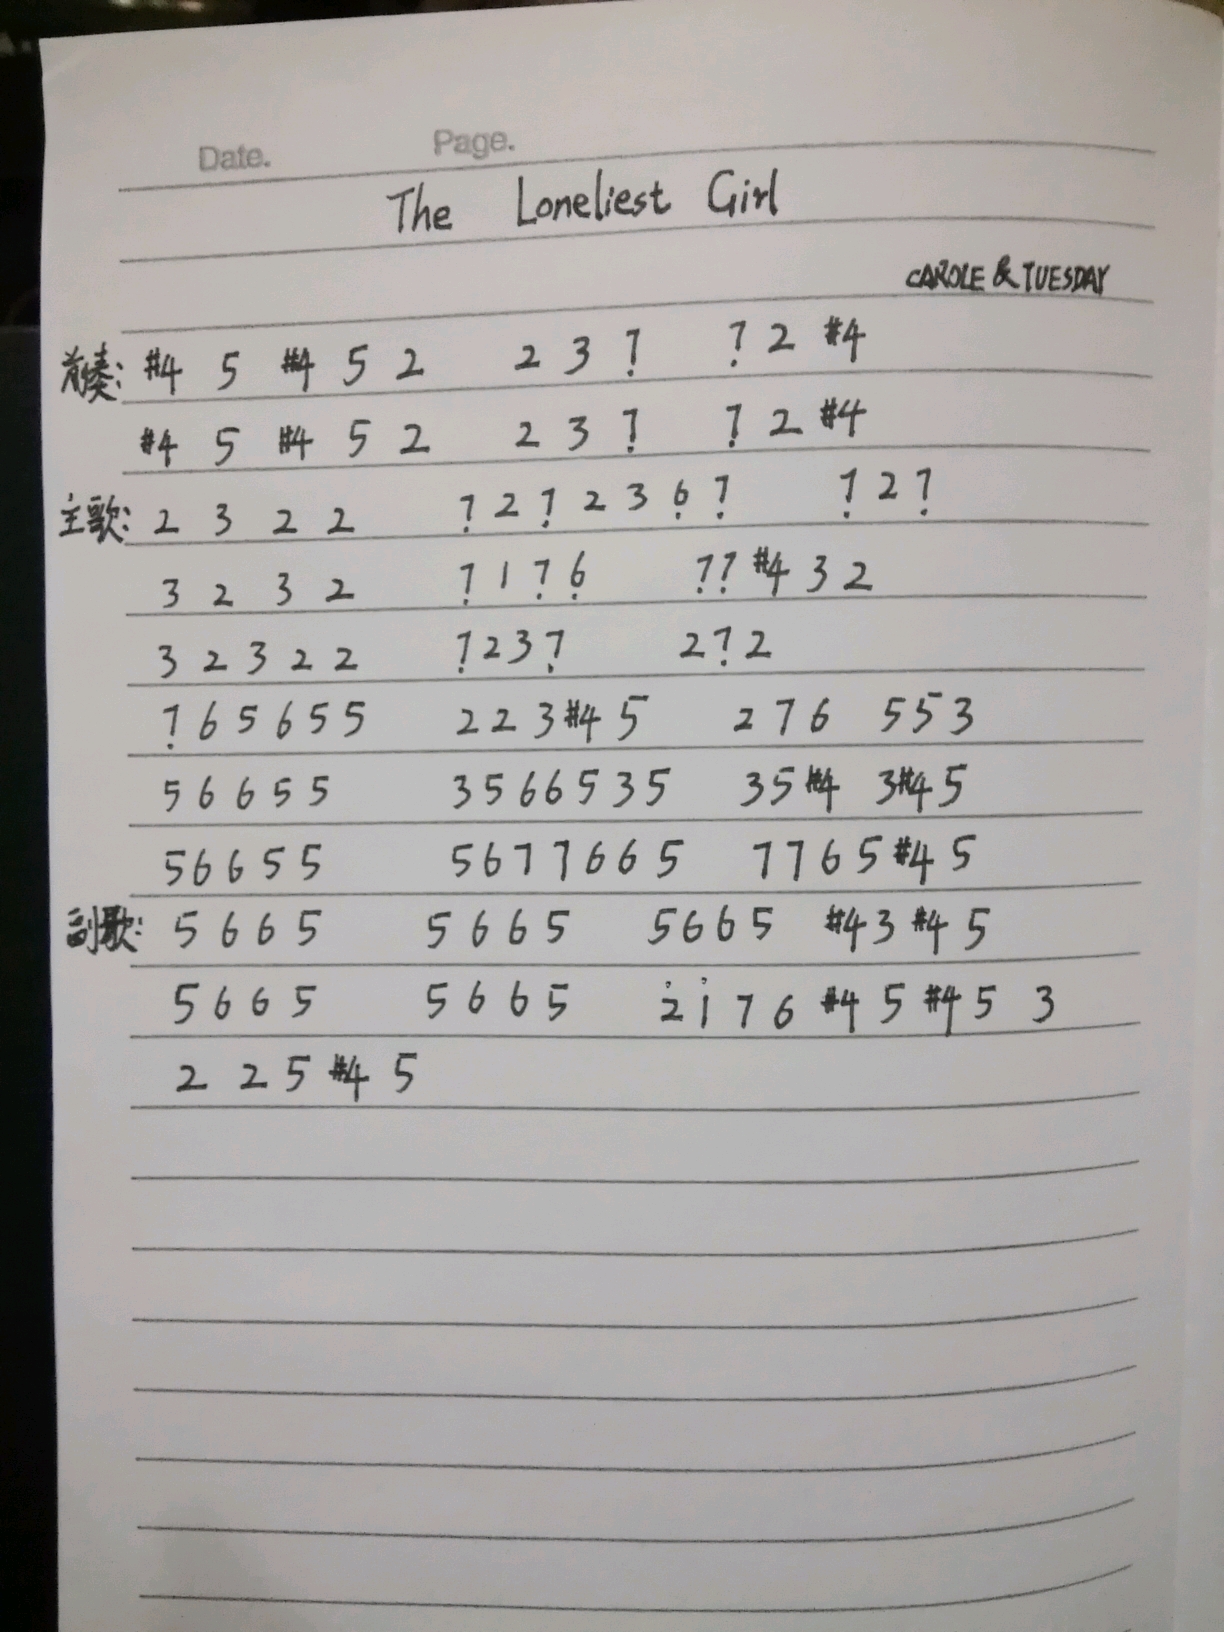 Date. Page.
The Loneliest Girl
CAROLE & TUESDAY
前奏: #4 5 #4 5 2 2 3 7̣ 7̣ 2 #4
#4 5 #4 5 2 2 3 7̣ 7̣ 2 #4
主歌: 2 3 2 2 7̣ 2 7̣ 2 3 6̣ 7̣ 7̣ 2 7̣
3 2 3 2 7̣ 1 7̣ 6̣ 7̣ 7̣ #4 3 2
3 2 3 2 2 7̣ 2 3 7̣ 2 7̣ 2
7̣ 6 5 6 5 5 2 2 3 #4 5 2 7 6 5 5 3
5 6 6 5 5 3 5 6 6 5 3 5 3 5 #4 3 #4 5
5 6 6 5 5 5 6 7 7 6 6 5 7 7 6 5 #4 5
副歌: 5 6 6 5 5 6 6 5 5 6 6 5 #4 3 #4 5
5 6 6 5 5 6 6 5 2̇ 1̇ 7 6 #4 5 #4 5 3
2 2 5 #4 5